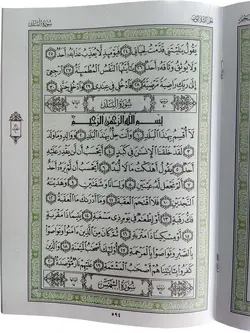 سُورَةُ البَلَدِ
الجُزْءُ الثَّلَاثُونَ
يَقُولُ يَٰلَيْتَنِى قَدَّمْتُ لِحَيَاتِى ٢٤ فَيَوْمَئِذٍ لَّا يُعَذِّبُ عَذَابَهُۥٓ أَحَدٌ ٢٥
وَلَا يُوثِقُ وَثَاقَهُۥٓ أَحَدٌ ٢٦ يَٰٓأَيَّتُهَا ٱلنَّفْسُ ٱلْمُطْمَئِنَّةُ ٢٧ ٱرْجِعِىٓ
إِلَىٰ رَبِّكِ رَاضِيَةً مَّرْضِيَّةً ٢٨ فَٱدْخُلِى فِى عِبَٰدِى ٢٩ وَٱدْخُلِى جَنَّتِى ٣٠
سُورَةُ البَلَدِ
بِسْمِ ٱللَّهِ ٱلرَّحْمَٰنِ ٱلرَّحِيمِ
لَآ أُقْسِمُ بِهَٰذَا ٱلْبَلَدِ ١ وَأَنتَ حِلٌّۢ بِهَٰذَا ٱلْبَلَدِ ٢ وَوَالِدٍ وَمَا وَلَدَ ٣
لَقَدْ خَلَقْنَا ٱلْإِنسَٰنَ فِى كَبَدٍ ٤ أَيَحْسَبُ أَن لَّن يَقْدِرَ عَلَيْهِ أَحَدٌ ٥
يَقُولُ أَهْلَكْتُ مَالًا لُّبَدًا ٦ أَيَحْسَبُ أَن لَّمْ يَرَهُۥٓ أَحَدٌ ٧
أَلَمْ نَجْعَل لَّهُۥ عَيْنَيْنِ ٨ وَلِسَانًا وَشَفَتَيْنِ ٩ وَهَدَيْنَٰهُ ٱلنَّجْدَيْنِ ١٠
فَلَا ٱقْتَحَمَ ٱلْعَقَبَةَ ١١ وَمَآ أَدْرَىٰكَ مَا ٱلْعَقَبَةُ ١٢ فَكُّ رَقَبَةٍ ١٣
أَوْ إِطْعَٰمٌ فِى يَوْمٍ ذِى مَسْغَبَةٍ ١٤ يَتِيمًا ذَا مَقْرَبَةٍ ١٥
أَوْ مِسْكِينًا ذَا مَتْرَبَةٍ ١٦ ثُمَّ كَانَ مِنَ ٱلَّذِينَ ءَامَنُوا۟ وَتَوَاصَوْا۟
بِٱلصَّبْرِ وَتَوَاصَوْا۟ بِٱلْمَرْحَمَةِ ١٧ أُو۟لَٰٓئِكَ أَصْحَٰبُ ٱلْمَيْمَنَةِ ١٨ وَٱلَّذِينَ
كَفَرُوا۟ بِـَٔايَٰتِنَا هُمْ أَصْحَٰبُ ٱلْمَشْـَٔمَةِ ١٩ عَلَيْهِمْ نَارٌ مُّؤْصَدَةٌۢ ٢٠
سُورَةُ الشَّمْسِ
٥٩٤